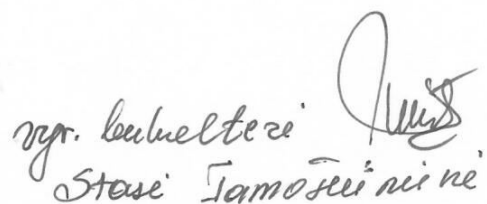 vyr. buhalterė
Stasė Tamošiūnienė